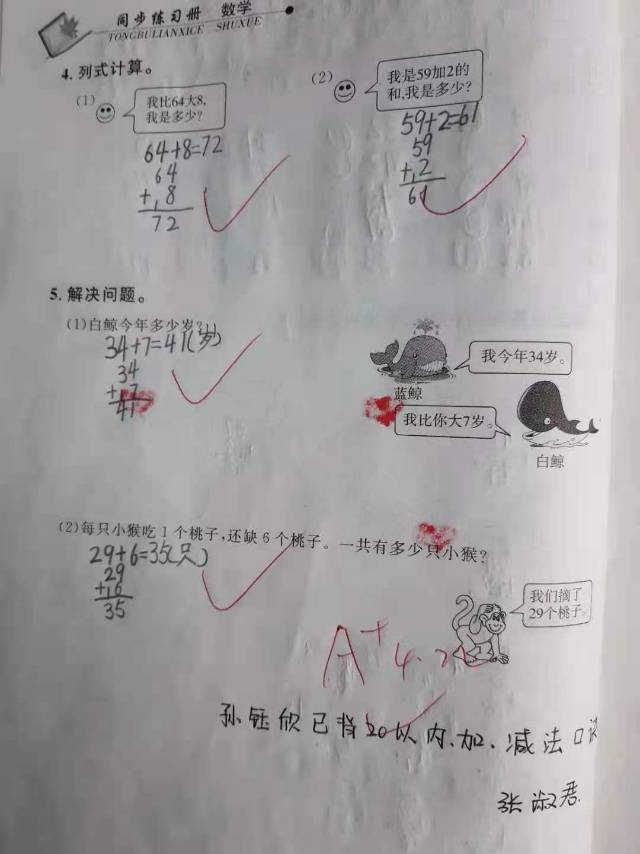 同步练习册 数学
TONGBULIANXICE SHUXUE
4. 列式计算。
(1)
我比64大8,
我是多少?
64+8=72
64
+ 8
72
(2)
我是59加2的
和,我是多少?
59+2=61
59
+ 2
61
5. 解决问题。
(1)白鲸今年多少岁?
34+7=41(岁)
34
+ 7
41
我今年34岁。
蓝鲸
我比你大7岁。
白鲸
(2)每只小猴吃1个桃子,还缺6个桃子。一共有多少只小猴?
29+6=35(只)
29
+ 6
35
我们摘了
29个桃子。
A+
孙钰欣已背20以内.加.减法口
张淑君